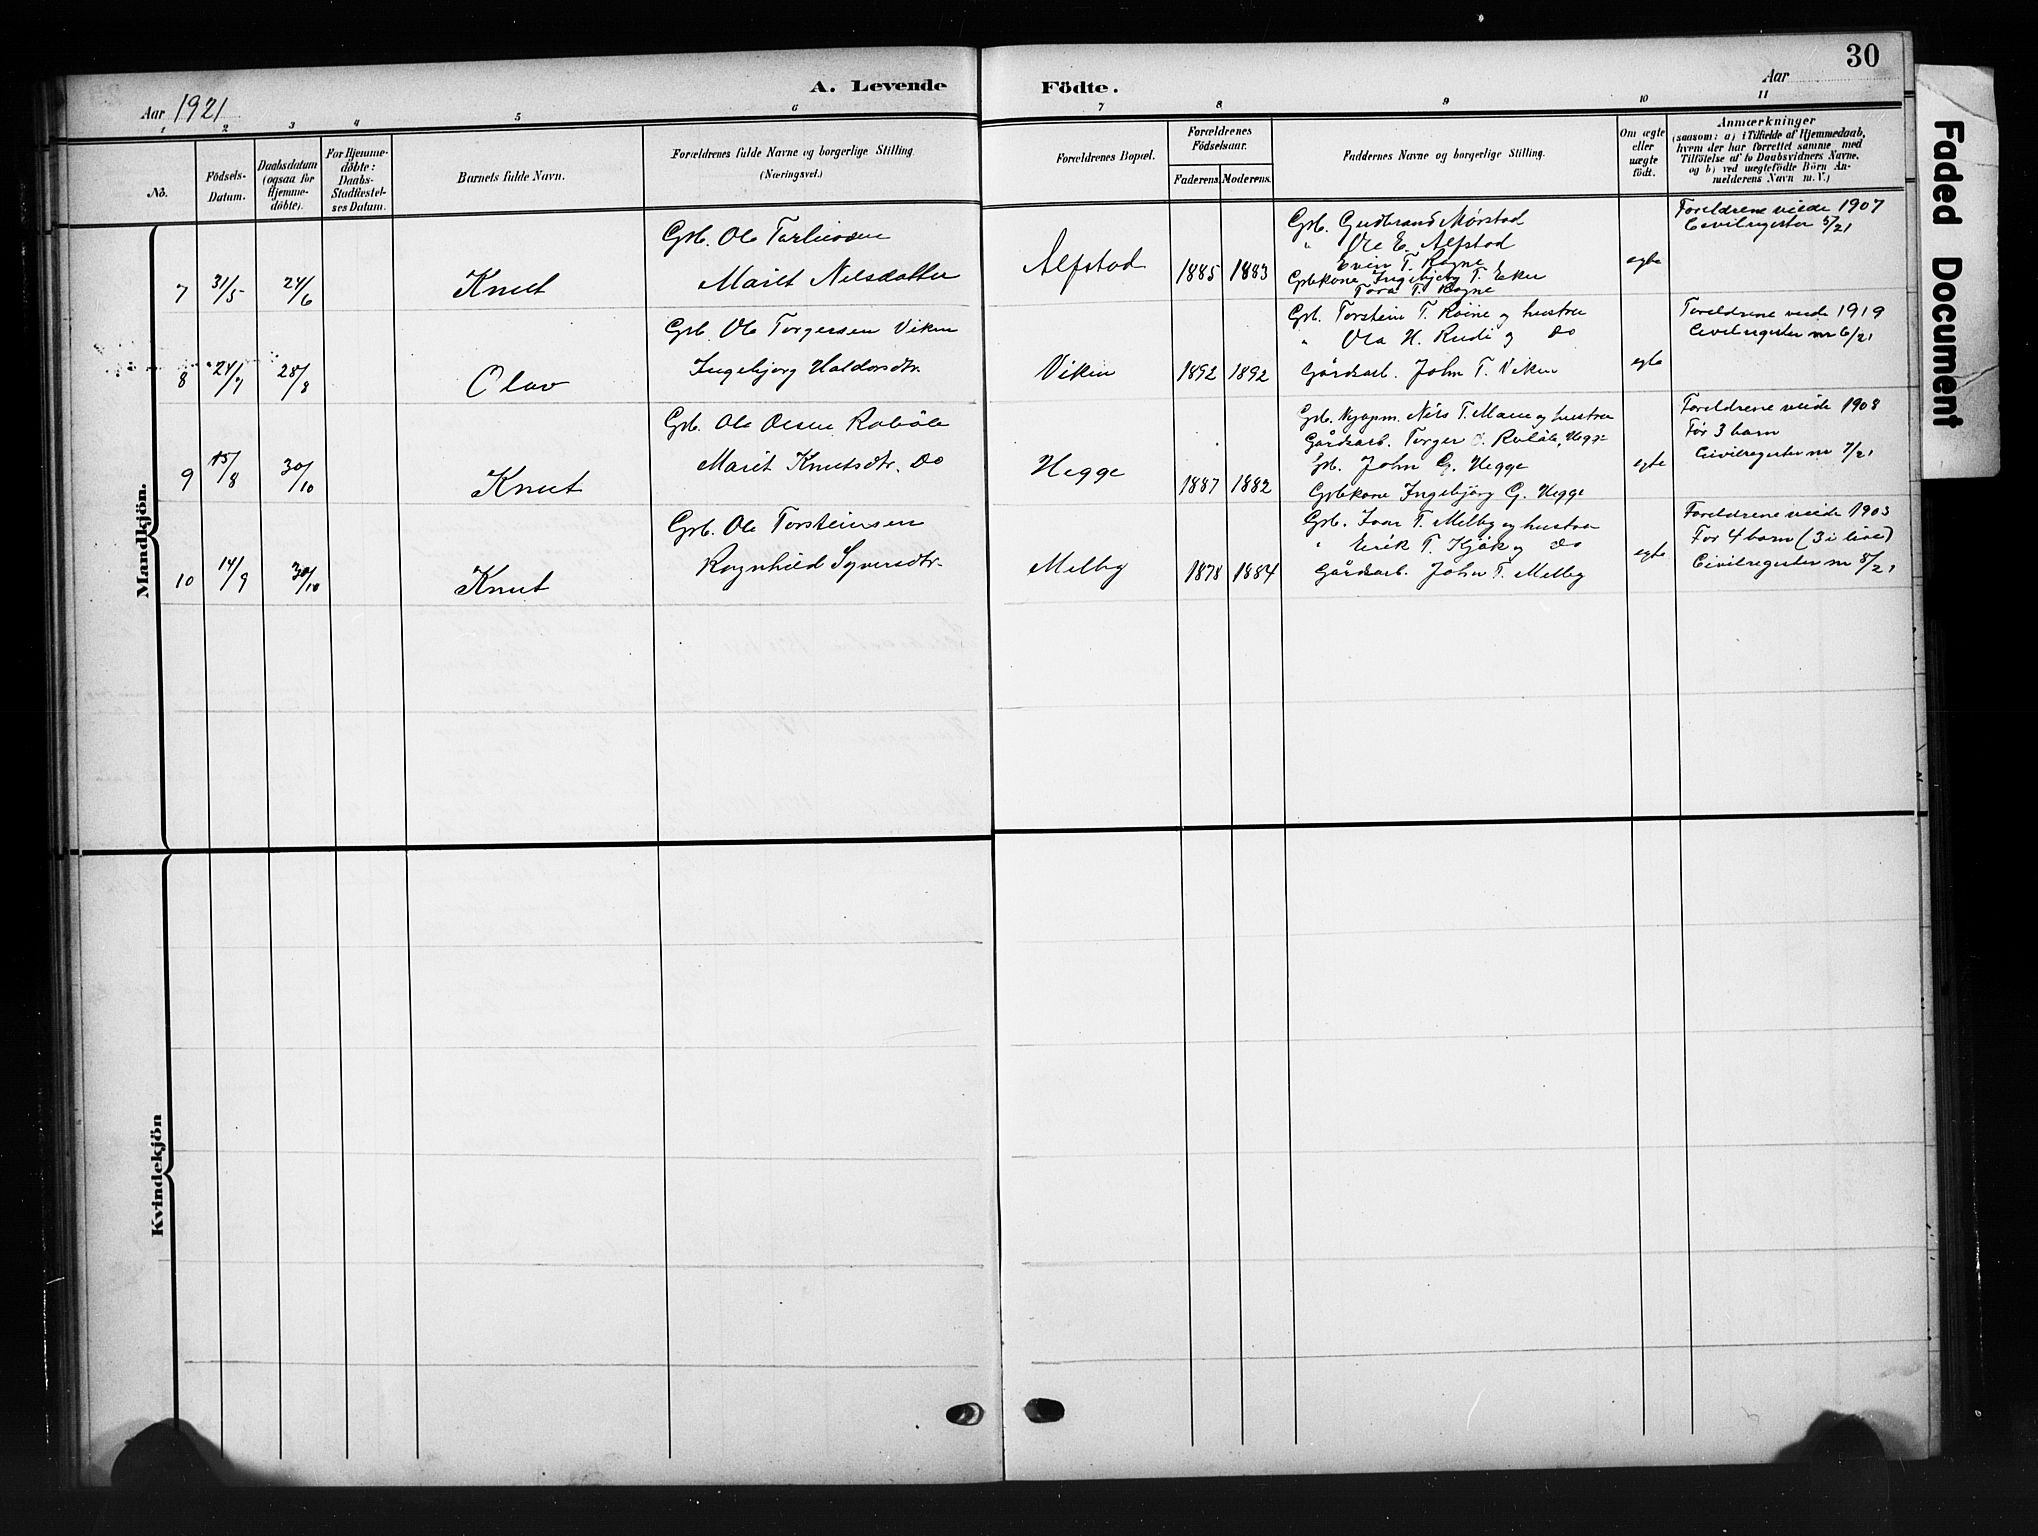 30
A. Levende Födte.
Aar 1921
Aar
1 2 3 4 5 6 7 8 9 10 11
No.
Födsels-Datum.
Daabsdatum (ogsaa for Hjemme-döbte).
For Hjemme-döbte: Daabs-Stadfæstel-ses Datum.
Barnets fulde Navn.
Forældrenes fulde Navne og borgerlige Stilling. (Næringsvei.)
Forældrenes Bopæl.
Forældrenes Födselsaar.
Faderens. Moderens.
Faddernes Navne og borgerlige Stilling.
Om ægte eller uægte födt.
Anmærkninger
(saasom: a) i Tilfælde af Hjemmedaab,
hvem der har forrettet samme med
Tilföielse af to Daabsvidners Navne,
og b) ved uægtefödte Börn An-
melderens Navn m. V.)
Mandkjön.
7 31/5 24/6 Knut
Gbr. Ole
Marit Nilsdatter
Alfstad 1885 1883
Gbr. Gudbrand Mørstad
" Ole E. Alfstad
Even T. Rogne
Gbrkone Ingebjørg T. Eken
Tora T. Rogne
egte
Foreldrene viede 1907
Civilregister 5/21
8 24/7 28/8 Olav
Gbr. Ole Torgersen Viken
Ingebjørg Haldorsdtr.
Viken 1892 1892
Gbr. Torstein T. Röine og hustru
" Ola H. Rudi og do
Gårdsarb. John T. Viken
egte
Foreldrene viede 1919
Civilregister nr 6/21
9 15/8 30/10 Knut
Gbr. Ole Olsen Robøle
Marit Knutsdtr. do
Hegge 1887 1882
Gbr. Kjøpm. Nils T. Moen og hustru
Gårdsarb. Torger O. Robøle, Hegge
Gbr. John G. Hegge
Gbrkone Ingebjørg G. Hegge
egte
Foreldrene viede 1908
Før 3 barn
Civilregister nr 7/21
10 14/9 30/10 Knut
Gbr. Ole Torsteinsen
Ragnhild Syversdtr.
Melby 1878 1884
Gbr. Ivar T. Melby og hustru
" Erik T. Kjøk og do
Gårdsarb. John T. Melby
egte
Foreldrene viede 1903
Før 4 barn (3 i live)
Civilregister nr 8/21
Kvindekjön
Faded Document